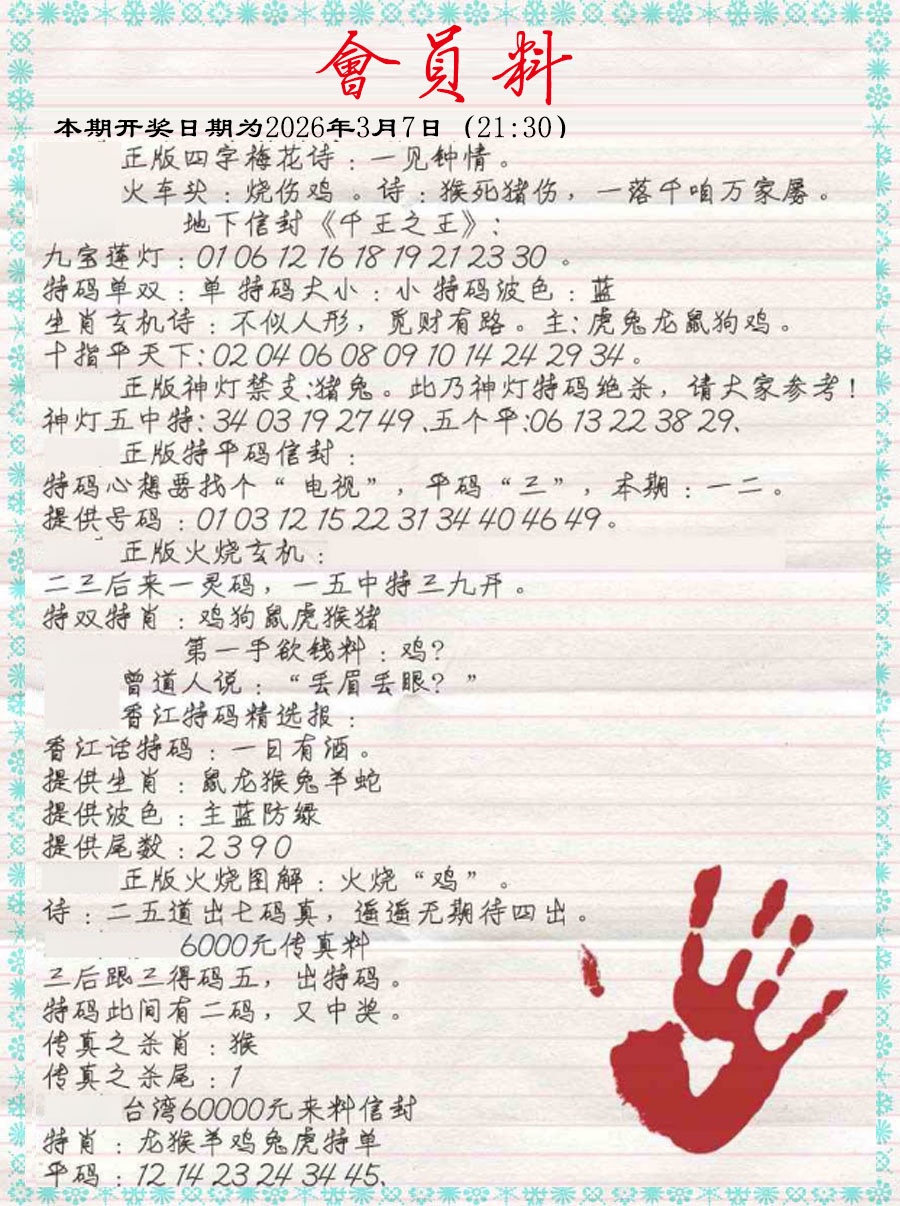 會員料
本期开奖日期为2026年3月7日（21:30）
正版四字梅花诗：一见钟情。
火车头：烧伤鸡。诗：猴死猪伤，一落千咱万家屡。
地下信封《千王之王》：
九宝莲灯：01 06 12 16 18 19 21 23 30 。
特码单双：单 特码大小：小 特码波色：蓝
生肖玄机诗：不似人形，觅财有路。主：虎兔龙鼠狗鸡。
十指平天下：02 04 06 08 09 10 14 24 29 34。
正版神灯禁支：猪兔。此乃神灯特码绝杀，请大家参考！
神灯五中特：34 03 19 27 49、五个平：06 13 22 38 29、
正版特平码信封：
特码心想要找个“电视”，平码“三”，本期：一二。
提供号码：01 03 12 15 22 31 34 40 46 49。
正版火烧玄机：
二三后来一灵码，一五中特三九开。
特双特肖：鸡狗鼠虎猴猪
第一手欲钱料：鸡？
曾道人说：“丢眉丢眼？”
香江特码精选报：
香江话特码：一日有酒。
提供生肖：鼠龙猴兔羊蛇
提供波色：主蓝防绿
提供尾数：2 3 9 0
正版火烧图解：火烧“鸡”。
诗：二五道出七码真，遥遥无期待四出。
6000元传真料
三后跟三得码五，出特码。
特码此间有二码，又中奖。
传真之杀肖：猴
传真之杀尾：1
台湾60000元来料信封
特肖：龙猴羊鸡兔虎特单
平码：12 14 23 24 34 45、